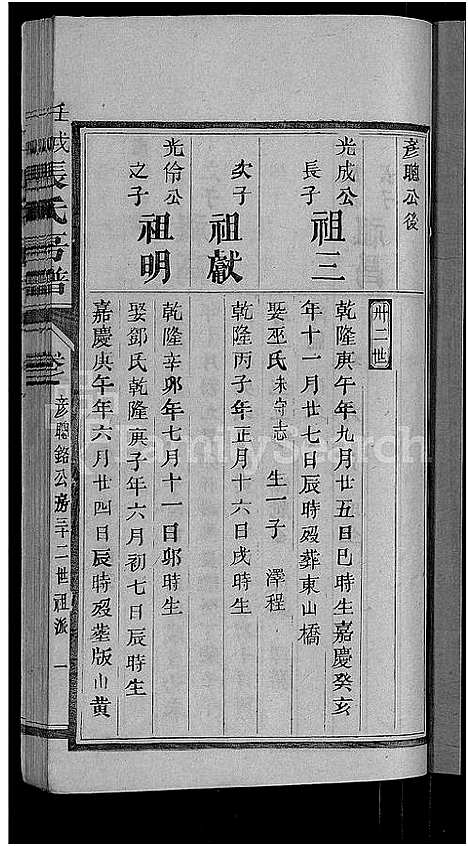 彦聰公後
卅二世
光成公長子 祖三 乾隆庚午年九月廿五日巳時生嘉慶癸亥
年十一月廿七日辰時歿葬東山橋
娶巫氏未守志 生一子 澤程
光成公次子 祖獻 乾隆丙子年正月十六日戌時生
光伶公之子 祖明 乾隆辛卯年七月十一日卯時生
娶鄧氏乾隆庚子年六月初七日辰時生
嘉慶庚午年六月廿四日辰時歿葬版山黄
張氏房譜
彦聰銘公房三十二世祖派 一
FamilySearch